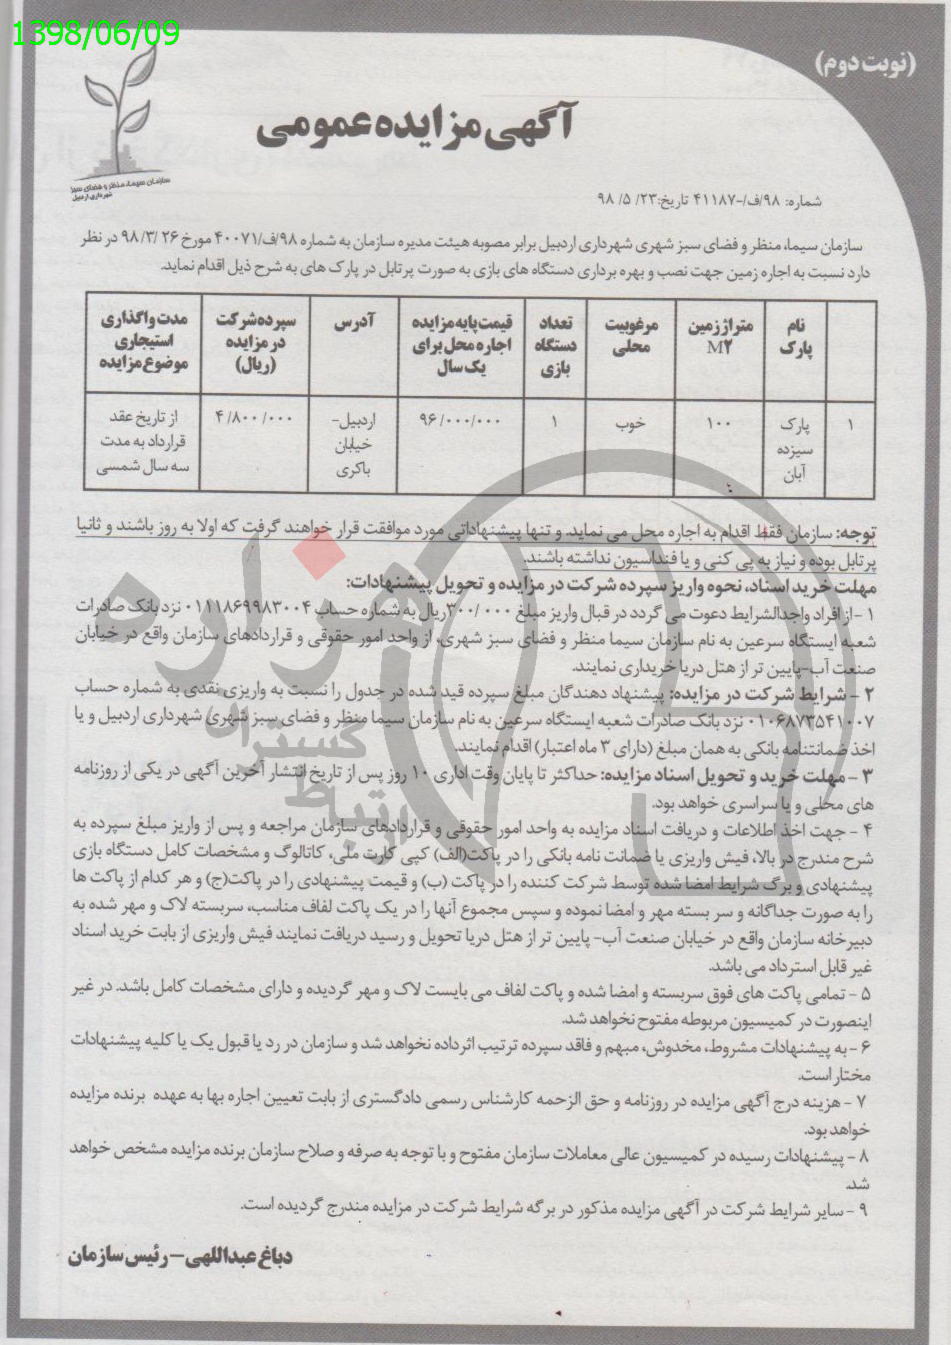 1398/06/09
(نوبت دوم)
آگهی مزایده عمومی
سازمان سیما، منظر و فضای سبز
شهرداری اردبیل
شماره: ۹۸/ف/-۴۱۱۸۷ تاریخ:۲۳/ ۵/ ۹۸
سازمان سیما، منظر و فضای سبز شهری شهرداری اردبیل برابر مصوبه هیئت مدیره سازمان به شماره ۹۸/ف/۴۰۰۷۱ مورخ ۲۶ /۹۸/۳ در نظر
دارد نسبت به اجاره زمین جهت نصب و بهره برداری دستگاه های بازی به صورت پرتابل در پارک های به شرح ذیل اقدام نماید.
نام پارک | متراژ زمین M۲ | مرغوبیت محلی | تعداد دستگاه بازی | قیمت پایه مزایده اجاره محل برای یک سال | آدرس | سپرده شرکت در مزایده (ریال) | مدت واگذاری استیجاری موضوع مزایده
۱ | پارک سیزده آبان | ۱۰۰ | خوب | ۱ | ۹۶/۰۰۰/۰۰۰ | اردبیل- خیابان باکری | ۴/۸۰۰/۰۰۰ | از تاریخ عقد قرارداد به مدت سه سال شمسی
توجه: سازمان فقط اقدام به اجاره محل می نماید. و تنها پیشنهاداتی مورد موافقت قرار خواهند گرفت که اولا به روز باشند و ثانیا
پرتابل بوده و نیاز به پی کنی و یا فنداسیون نداشته باشند.
مهلت خرید اسناد، نحوه واریز سپرده شرکت در مزایده و تحویل پیشنهادات:
۱ - از افراد واجدالشرایط دعوت می گردد در قبال واریز مبلغ ۳۰۰/۰۰۰ریال به شماره حساب ۰۱۱۱۸۶۹۹۸۳۰۰۴ نزد بانک صادرات
شعبه ایستگاه سرعین به نام سازمان سیما منظر و فضای سبز شهری، از واحد امور حقوقی و قراردادهای سازمان واقع در خیابان
صنعت آب-پایین تر از هتل دریا خریداری نمایند.
۲ - شرایط شرکت در مزایده: پیشنهاد دهندگان مبلغ سپرده قید شده در جدول را نسبت به واریزی نقدی به شماره حساب
۰۱۰۶۸۷۳۵۴۱۰۰۷ نزد بانک صادرات شعبه ایستگاه سرعین به نام سازمان سیما منظر و فضای سبز شهری شهرداری اردبیل و یا
اخذ ضمانتنامه بانکی به همان مبلغ (دارای ۳ ماه اعتبار) اقدام نمایند.
۳ - مهلت خرید و تحویل اسناد مزایده: حداکثر تا پایان وقت اداری ۱۰ روز پس از تاریخ انتشار آخرین آگهی در یکی از روزنامه
های محلی و یا سراسری خواهد بود.
۴ - جهت اخذ اطلاعات و دریافت اسناد مزایده به واحد امور حقوقی و قراردادهای سازمان مراجعه و پس از واریز مبلغ سپرده به
شرح مندرج در بالا، فیش واریزی یا ضمانت نامه بانکی را در پاکت(الف) کپی کارت ملی، کاتالوگ و مشخصات کامل دستگاه بازی
پیشنهادی و برگ شرایط امضا شده توسط شرکت کننده را در پاکت (ب) و قیمت پیشنهادی را در پاکت(ج) و هر کدام از پاکت ها
را به صورت جداگانه و سر بسته مهر و امضا نموده و سپس مجموع آنها را در یک پاکت لفاف مناسب، سربسته لاک و مهر شده به
دبیرخانه سازمان واقع در خیابان صنعت آب- پایین تر از هتل دریا تحویل و رسید دریافت نمایند فیش واریزی از بابت خرید اسناد
غیر قابل استرداد می باشد.
۵ - تمامی پاکت های فوق سربسته و امضا شده و پاکت لفاف می بایست لاک و مهر گردیده و دارای مشخصات کامل باشد. در غیر
اینصورت در کمیسیون مربوطه مفتوح نخواهد شد.
۶ - به پیشنهادات مشروط، مخدوش، مبهم و فاقد سپرده ترتیب اثرداده نخواهد شد و سازمان در رد یا قبول یک یا کلیه پیشنهادات
مختار است.
۷ - هزینه درج آگهی مزایده در روزنامه و حق الزحمه کارشناس رسمی دادگستری از بابت تعیین اجاره بها به عهده برنده مزایده
خواهد بود.
۸ - پیشنهادات رسیده در کمیسیون عالی معاملات سازمان مفتوح و با توجه به صرفه و صلاح سازمان برنده مزایده مشخص خواهد
شد.
۹ - سایر شرایط شرکت در آگهی مزایده مذکور در برگه شرایط شرکت در مزایده مندرج گردیده است.
دباغ عبداللهی – رئیس سازمان
هزاره
گستران
ارتباط